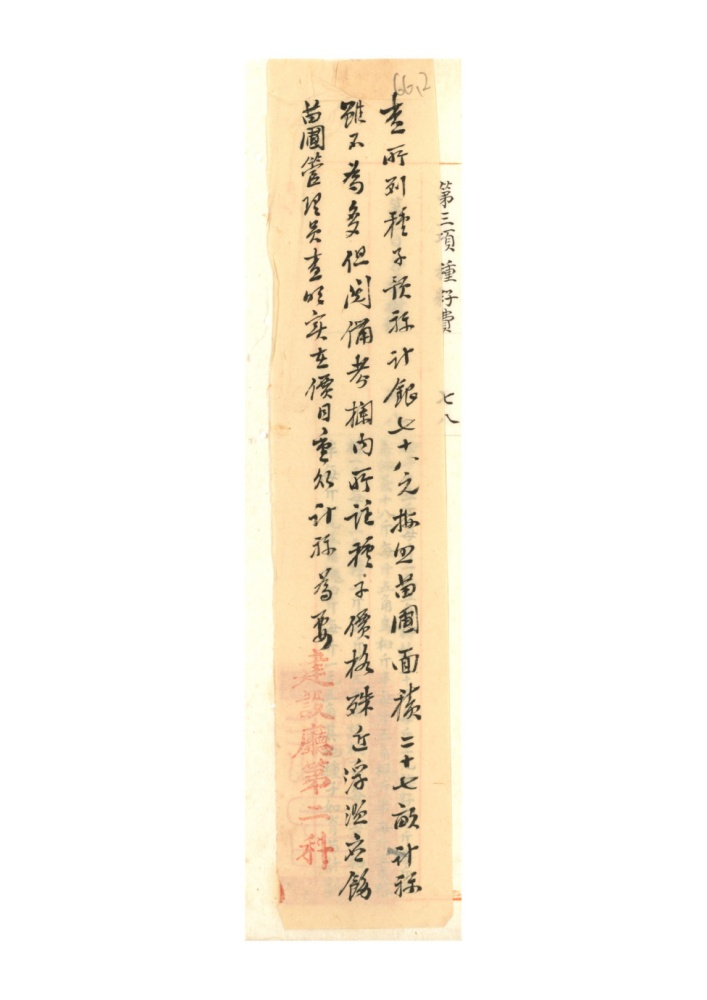 66.2
第三項 種籽費 七八
查所列種子預祘計銀七十八元按照苗圃面積二十七畝計祘
雖不為多但閱備考欄內所註種子價格殊近浮濫应飭
苗圃管理员查明实在價目重行計祘為要
建設廳第二科